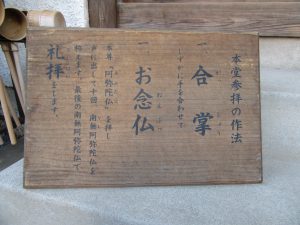 本堂参拝の作法
一 合掌
しずかに手を合わせて
一 お念仏
本尊、阿弥陀仏を拝し
声に出して十回、南無阿弥陀仏を
称えます。最後の南無阿弥陀仏で、
礼拝をします